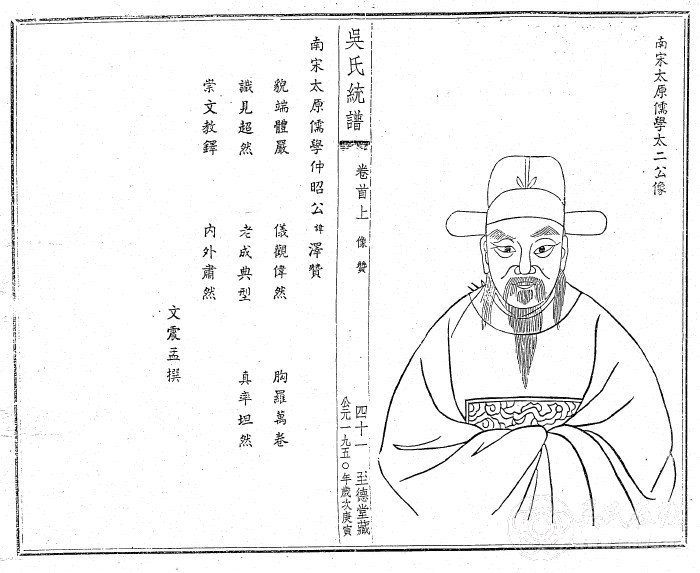 南宋太原儒學太二公像
吳氏統譜
卷首上 像贊
四十一 至德堂藏
公元一九五〇年歲次庚寅
南宋太原儒學仲昭公諱澤贊
貌端體嚴 儀觀偉然 胸羅萬卷
識見超然 老成典型 真率坦然
崇文教鐸 內外肅然
文震孟撰